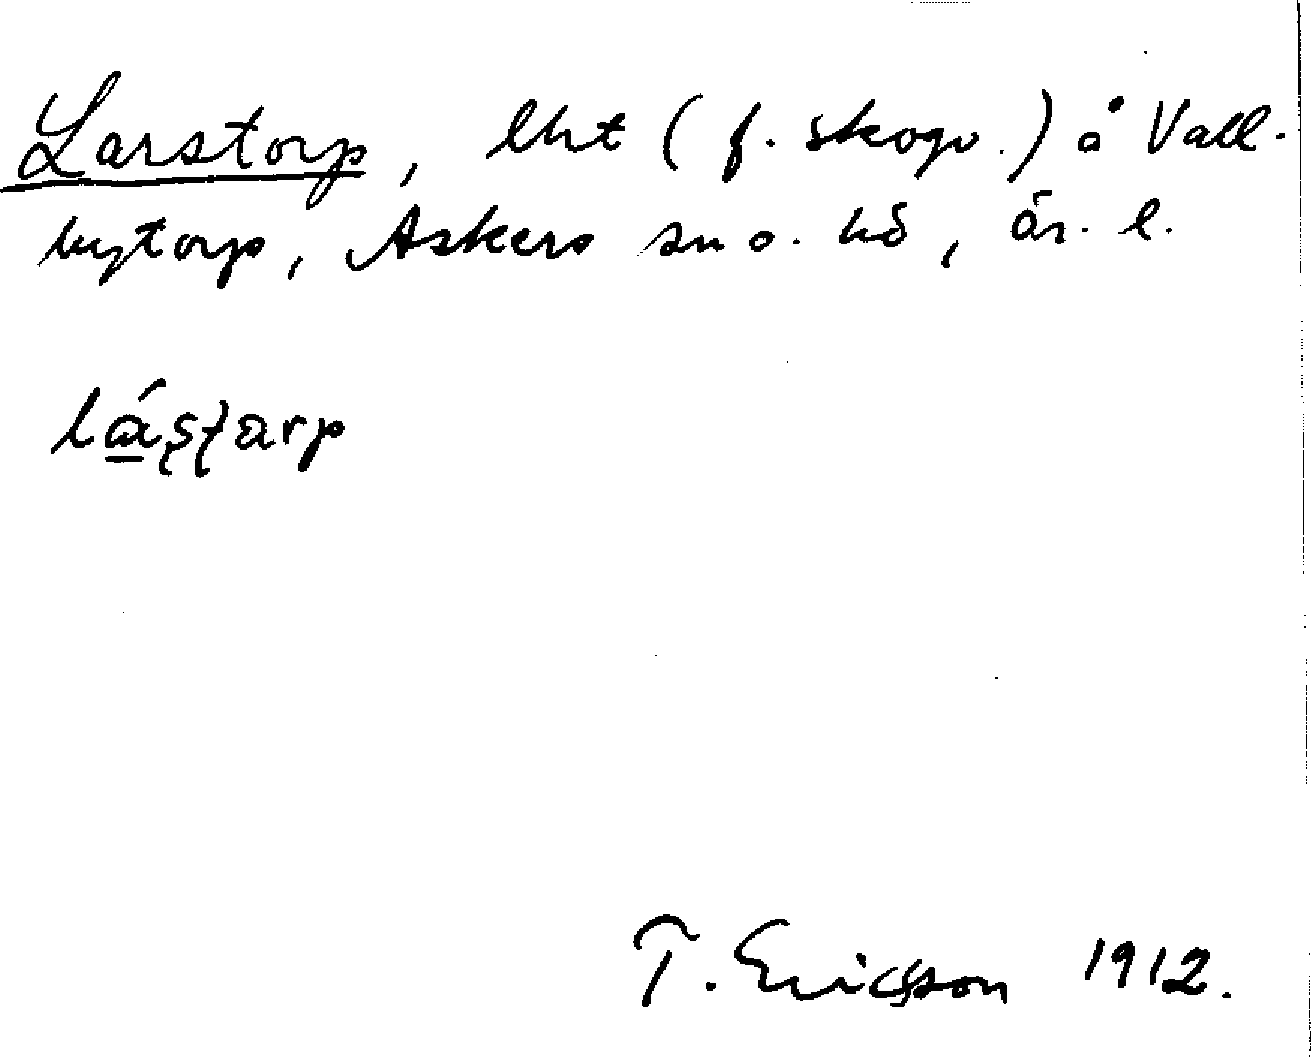 Larstorp, lht (f. skogv.) å Vall-
bytorp, Askers sn o. hd, ör. l.
lás̱ṯarp
T. Ericsson 1912.